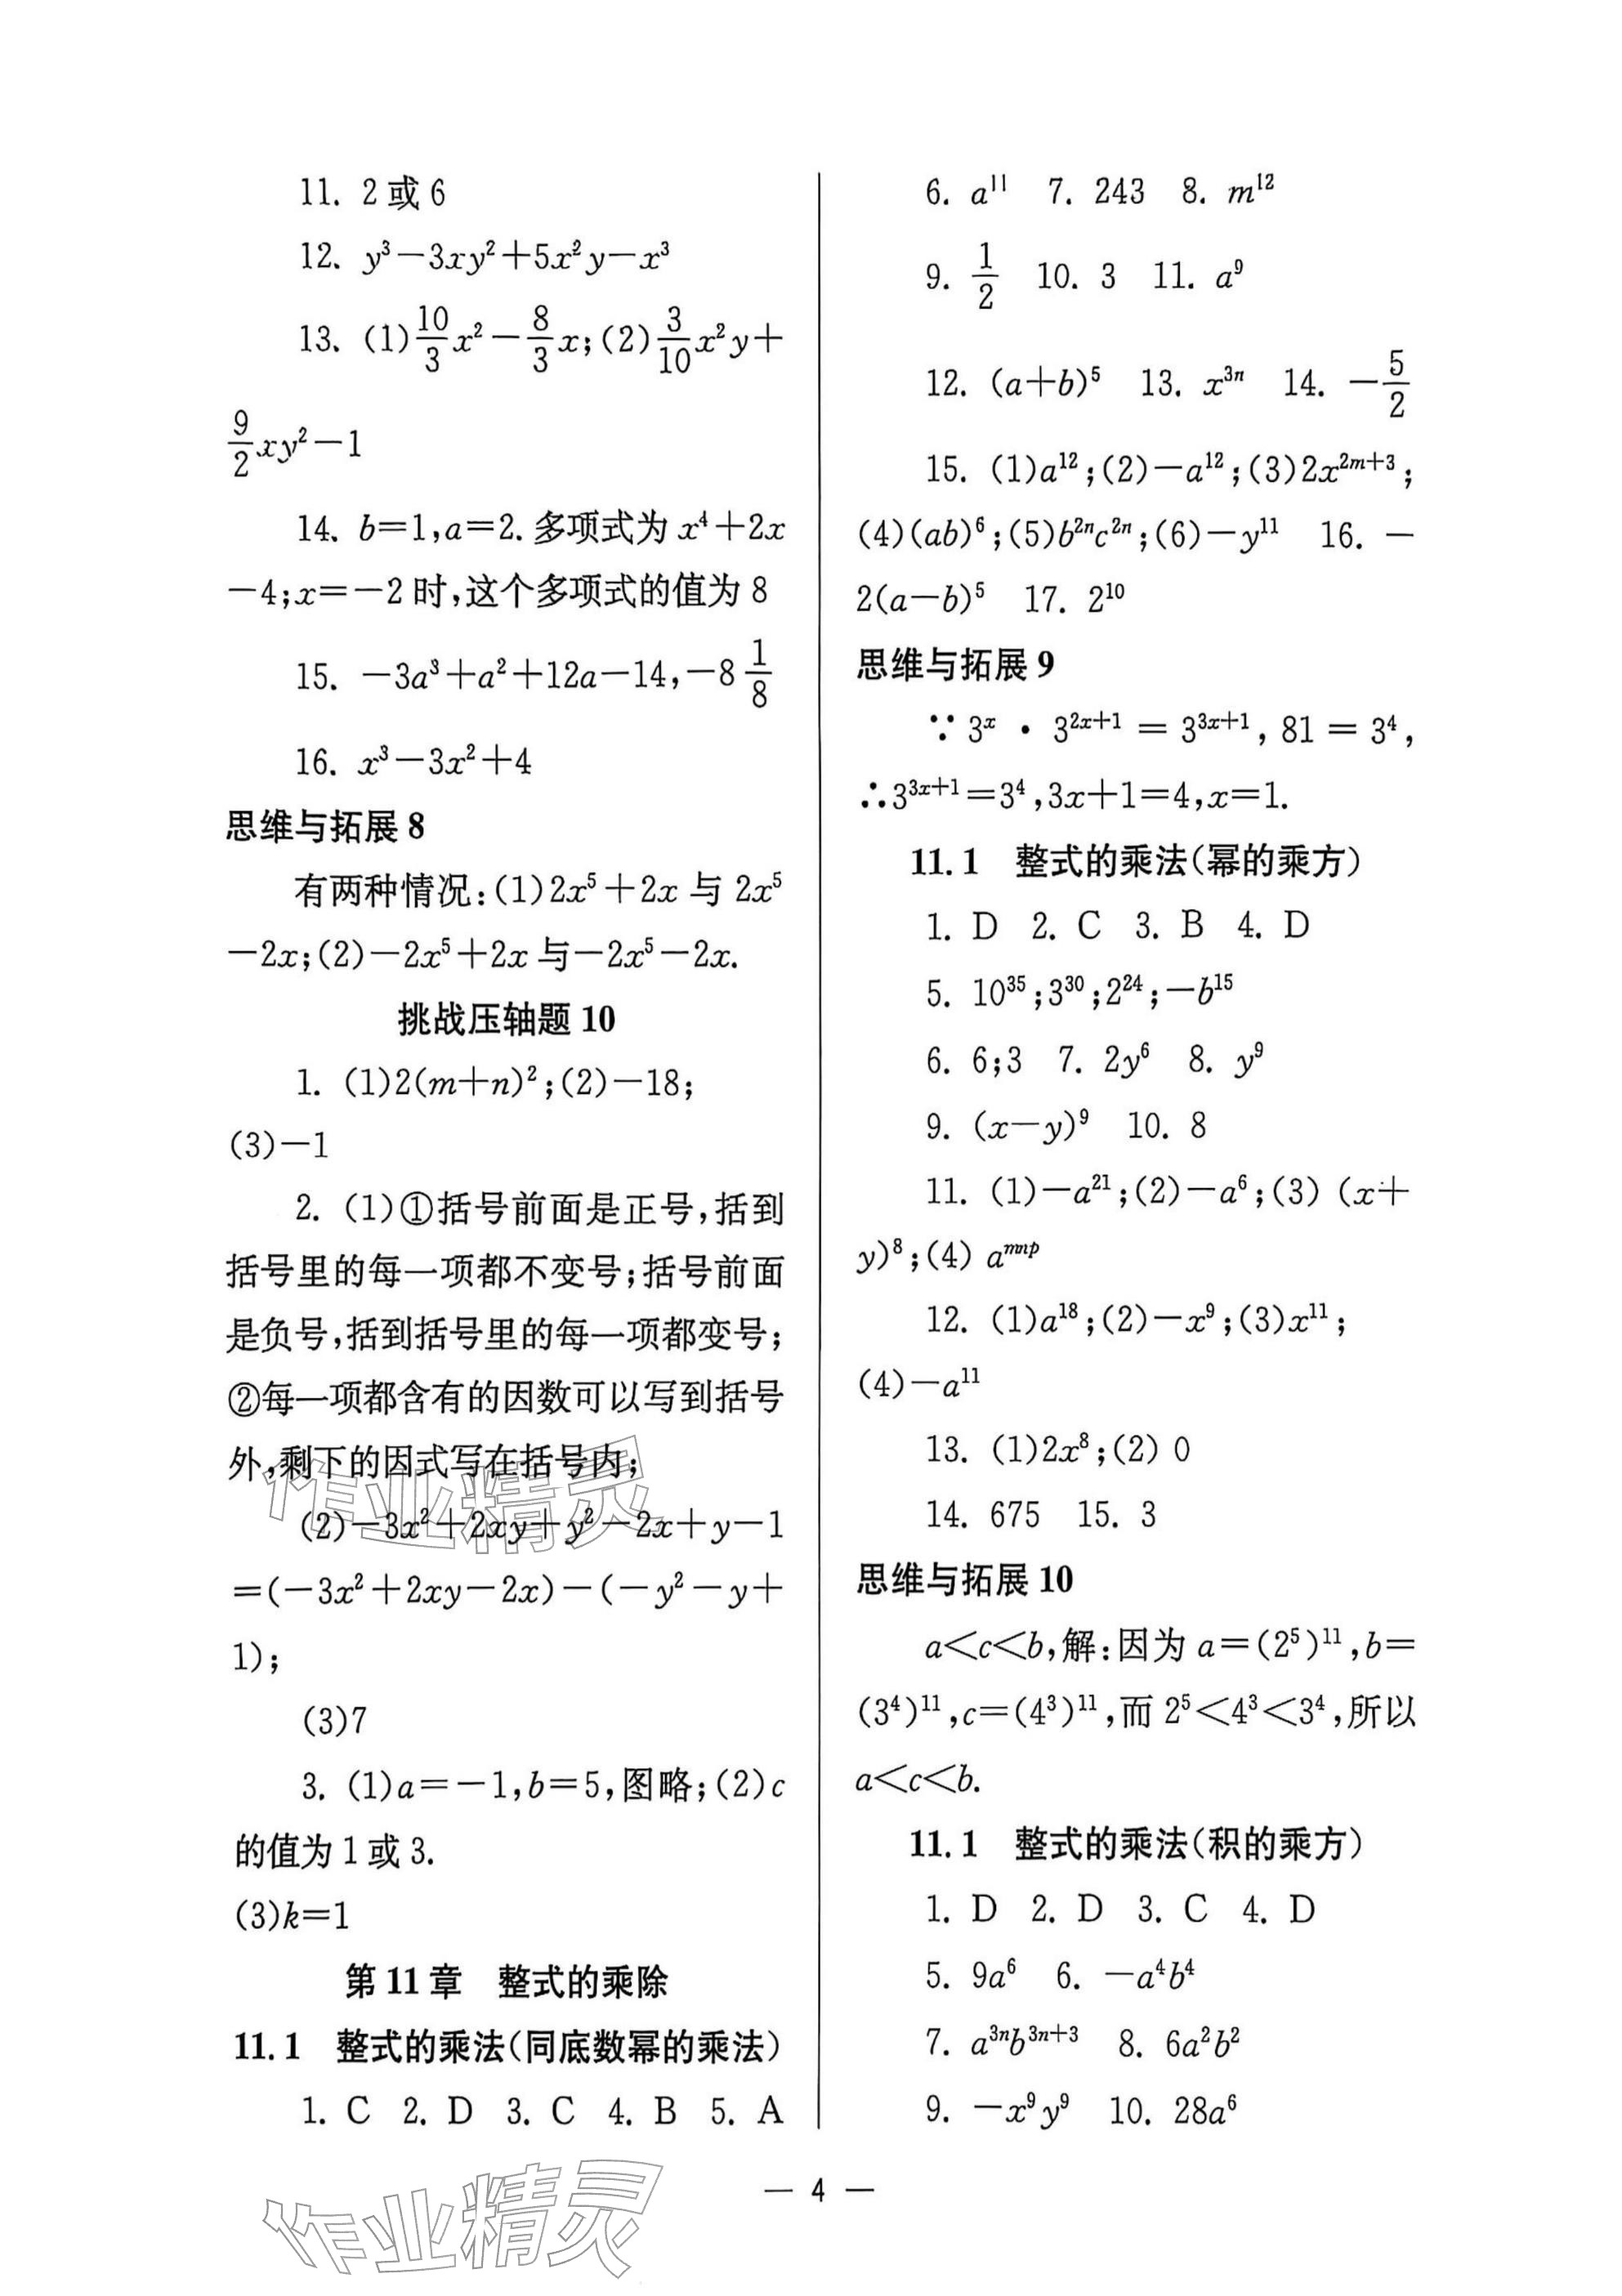 11. 2或6
12. y³－3xy²＋5x²y－x³
13. (1)10/3x²－8/3x；(2)3/10x²y＋
9/2xy²－1
14. b＝1，a＝2. 多项式为 x⁴＋2x
－4；x＝－2时，这个多项式的值为8
15. －3a³＋a²＋12a－14，－8 1/8
16. x³－3x²＋4
思维与拓展8
有两种情况：(1)2x⁵＋2x与2x⁵
－2x；(2)－2x⁵＋2x与－2x⁵－2x.
挑战压轴题10
1. (1)2(m＋n)²；(2)－18；
(3)－1
2. (1)①括号前面是正号，括到
括号里的每一项都不变号；括号前面
是负号，括到括号里的每一项都变号；
②每一项都含有的因数可以写到括号
外，剩下的因式写在括号内；
(2)－3x²＋2xy＋y²－2x＋y－1
＝(－3x²＋2xy－2x)－(－y²－y＋
1)；
(3)7
3. (1)a＝－1，b＝5，图略；(2)c
的值为1或3.
(3)k＝1
第11章　整式的乘除
11.1　整式的乘法(同底数幂的乘法)
1. C　2. D　3. C　4. B　5. A
6. a¹¹　7. 243　8. m¹²
9. 1/2　10. 3　11. a⁹
12. (a＋b)⁵　13. x³ⁿ　14. －5/2
15. (1)a¹²；(2)－a¹²；(3)2x^{2m+3}；
(4)(ab)⁶；(5)b²ⁿc²ⁿ；(6)－y¹¹　16. －
2(a－b)⁵　17. 2¹⁰
思维与拓展9
∵3^x · 3^{2x+1} ＝ 3^{3x+1}，81 ＝ 3⁴，
∴3^{3x+1}＝3⁴，3x＋1＝4，x＝1.
11.1　整式的乘法(幂的乘方)
1. D　2. C　3. B　4. D
5. 10³⁵；3³⁰；2²⁴；－b¹⁵
6. 6；3　7. 2y⁶　8. y⁹
9. (x－y)⁹　10. 8
11. (1)－a²¹；(2)－a⁶；(3) (x＋
y)⁸；(4) a^{mnp}
12. (1)a¹⁸；(2)－x⁹；(3)x¹¹；
(4)－a¹¹
13. (1)2x⁸；(2) 0
14. 675　15. 3
思维与拓展10
a＜c＜b，解：因为 a＝(2⁵)¹¹，b＝
(3⁴)¹¹，c＝(4³)¹¹，而 2⁵＜4³＜3⁴，所以
a＜c＜b.
11.1　整式的乘法(积的乘方)
1. D　2. D　3. C　4. D
5. 9a⁶　6. －a⁴b⁴
7. a^{3n}b^{3n+3}　8. 6a²b²
9. －x⁹y⁹　10. 28a⁶
— 4 —
作业精灵
作业精灵